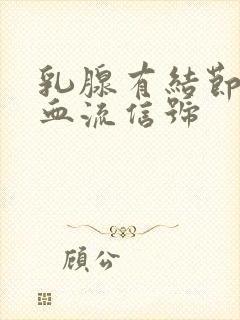 乳腺有結節
血流信號
顧公